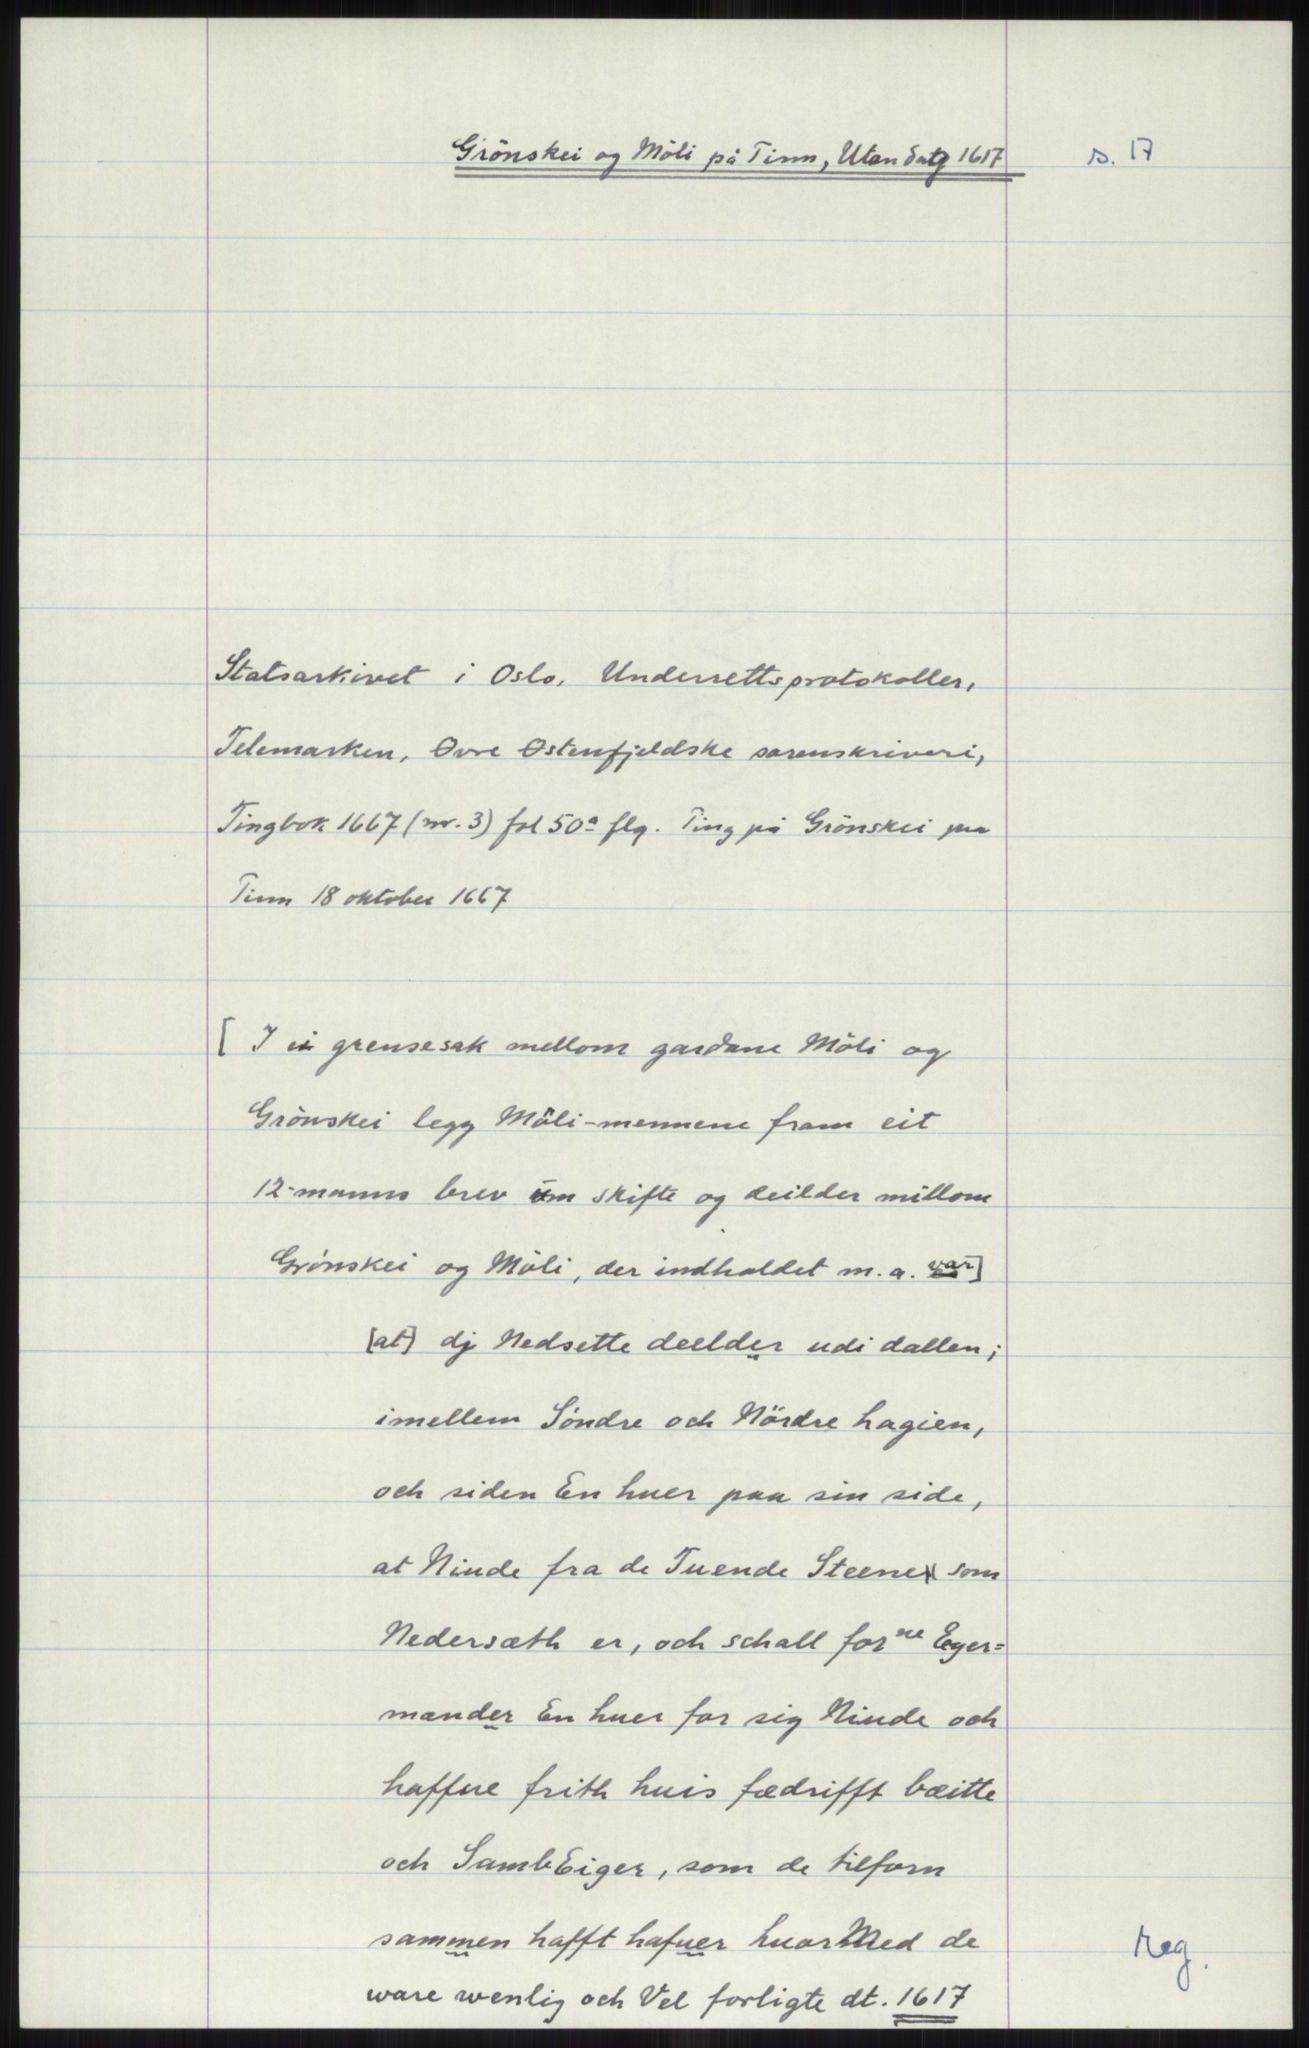 Grönskei og Möli på Tinn, Utan datg 1617
s. 17
Statsarkivet i Oslo. Underrettsprotokoller,
Telemarken, Øvre Østenfjeldske sorenskriveri,
Tingbok 1667 (nr. 3) fol 50a flg. Ting på Grönskei paa
Tinn 18 oktober 1667
[ I ei grensesak mellom gardane Möli og
Grönskei legg Möli-mennene fram eit
12-manns brev um skifte og deilder millom
Grönskei og Möli, der indholdet m.a. var]
[at] dj Nedsette deelder udi dallen;
imellem Söndre och Nördre hagien,
och siden En huer paa sin side,
at Niude fra de Tuende Steene som
Nedersæth er, och schall forne Eyer=
mander En huer for sig Niude och
haffue frith huis fædrifft bæitte
och SambEiger, som de tilforn
sammen hafft hafuer huorMed de
ware wenlig och Vel forligte dt. 1617
Reg.